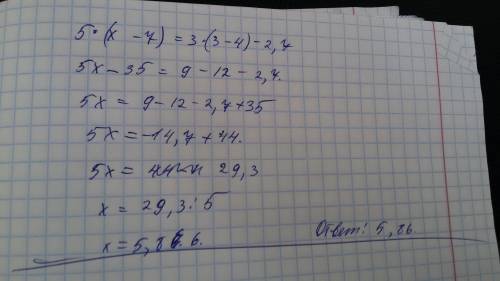 5·(x - 7) = 3·(3-4)-2,7
5x - 35 = 9 - 12 - 2,7.
5x = 9-12-2,7+35
5x = -14,7 + 44.
5x = 29,3
x = 29,3:5
x = 5,86.
Ответ: 5,86.